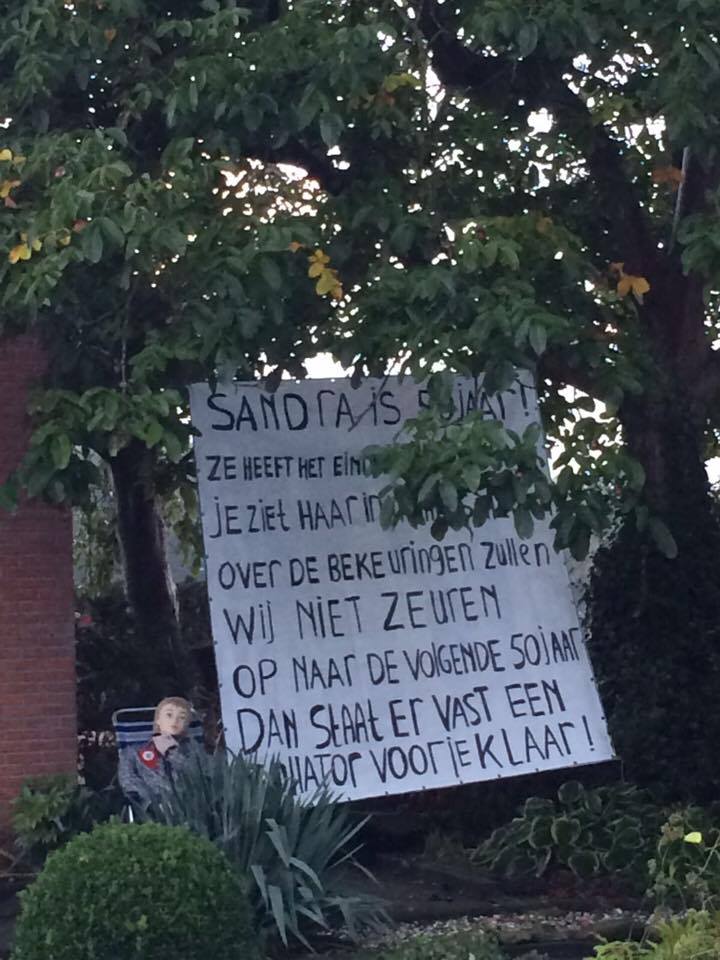 SANDRA IS 50 JAAR!
ZE HEEFT HET
JE ZIET HAAR IN
OVER DE BEKEURINGEN ZULLEN
WIJ NIET ZEUREN
OP NAAR DE VOLGENDE 50 JAAR
DAN STAAT ER VAST EEN
VOOR JE KLAAR!